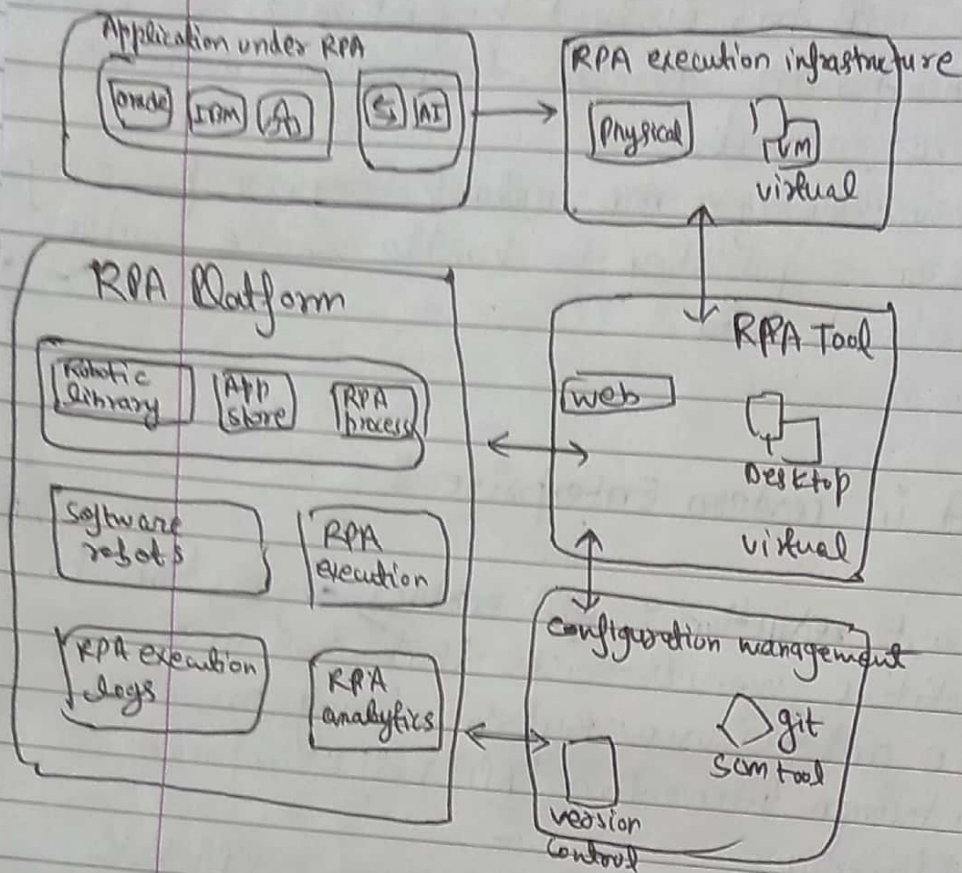 Application under RPA
Oracle
IBM
AI
RPA execution infrastructure
Physical
VM
virtual
RPA Platform
Robotic
library
App
store
RPA
process
software
robots
RPA
execution
RPA execution
logs
RPA
analytics
RPA Tool
web
Desktop
virtual
configuration management
git
SCM tool
version
control